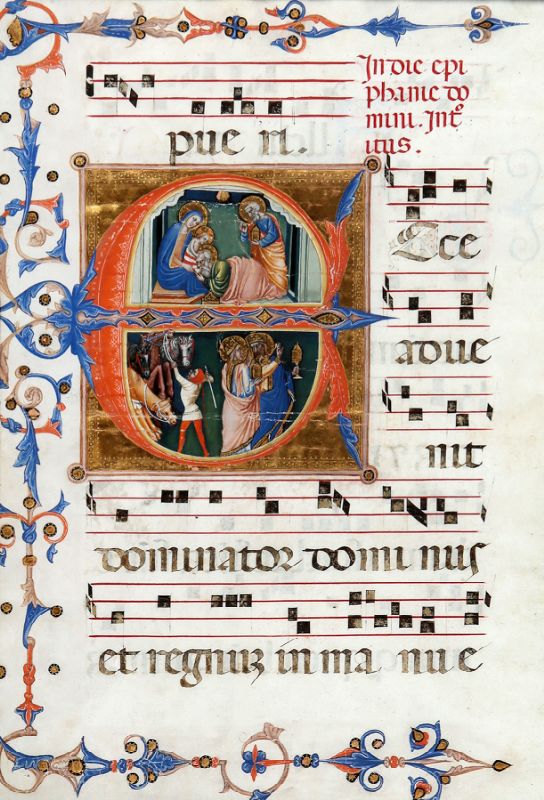 pue ri.
In die epi
phanie do
mini. Intº
itus.
ECce
adue
nit
dominator domi nus
et regnuʒ in ma nue